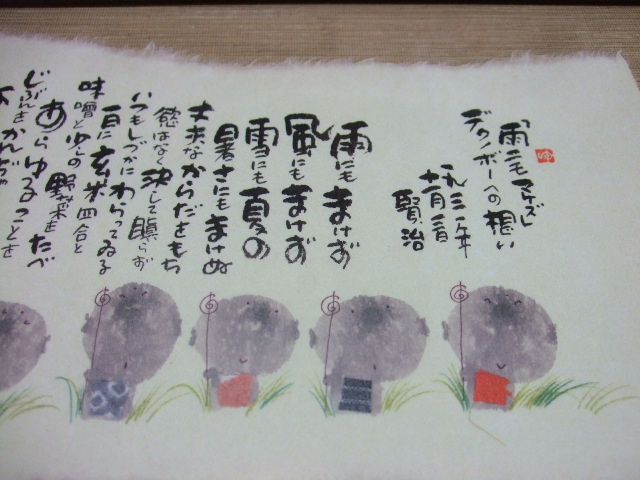 「雨ニモマケズ」
デクノボーへの想い
一九三一年
十一月三日
賢治
雨にもまけず
風にもまけず
雪にも夏の
暑さにもまけぬ
丈夫なからだをもち
慾はなく決して瞋らず
いつもしづかにわらってゐる
一日に玄米四合と
味噌と少しの野菜をたべ
あらゆることを
じぶんをかんぢゃ